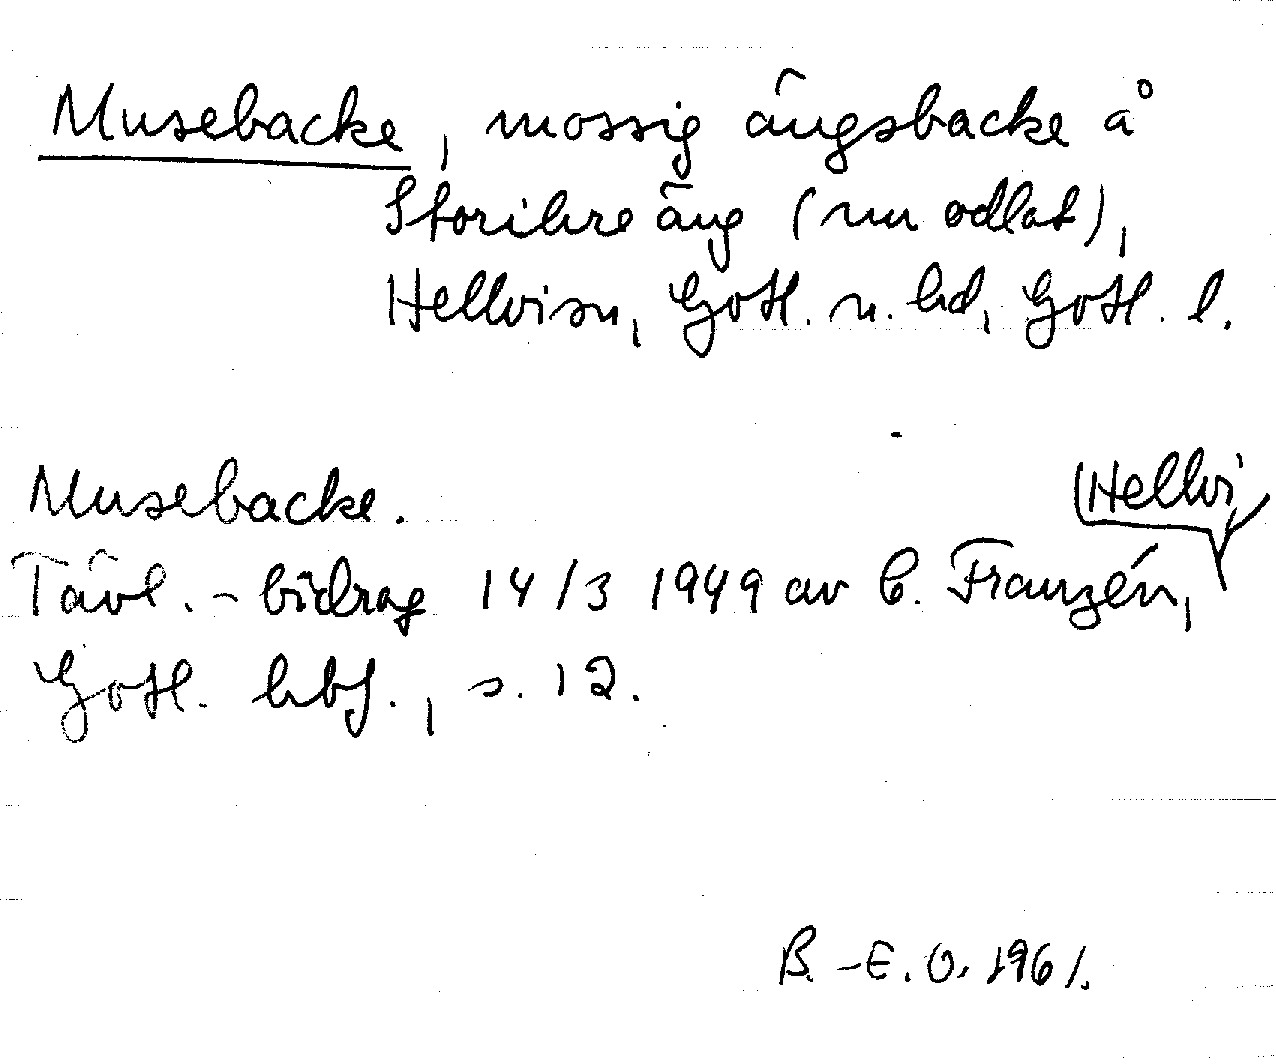 Musebacke, mossig ängsbacke å
Storihre äng (nu odlat),
Hellvi sn, Gotl. n. hd, Gotl. l.
Musebacke.
(Hellvi)
Tävl.-bidrag 14/3 1949 av C. Franzén,
Gotl. hbf., s. 12.
B.-E. O. 1961.